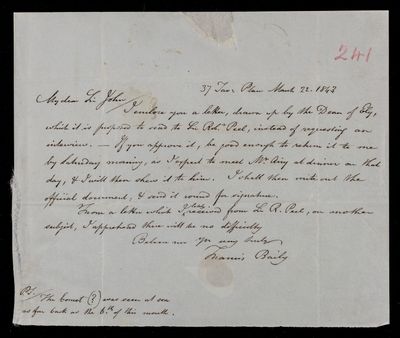 241
37 Tav. Place March 22. 1843
My dear Sir John
I enclose you a letter, drawn up by the Dean of Ely,
which it is proposed to send to Sir Rob.t Peel, instead of requesting an
interview. — If you approve it, be good enough to return it to me
by Saturday morning, as I expect to meet Mr. Airy at dinner on that
day, & I will then shew it to him. I shall then write out the
official document, & send it round for signature.
From a letter which I lately received from Sir R. Peel, on another
subject, I apprehend there will be no difficulty
Believe me Yrs very truly
Francis Baily
P.S. The Comet (?) was seen at sea
as far back as the 6.th of this month.